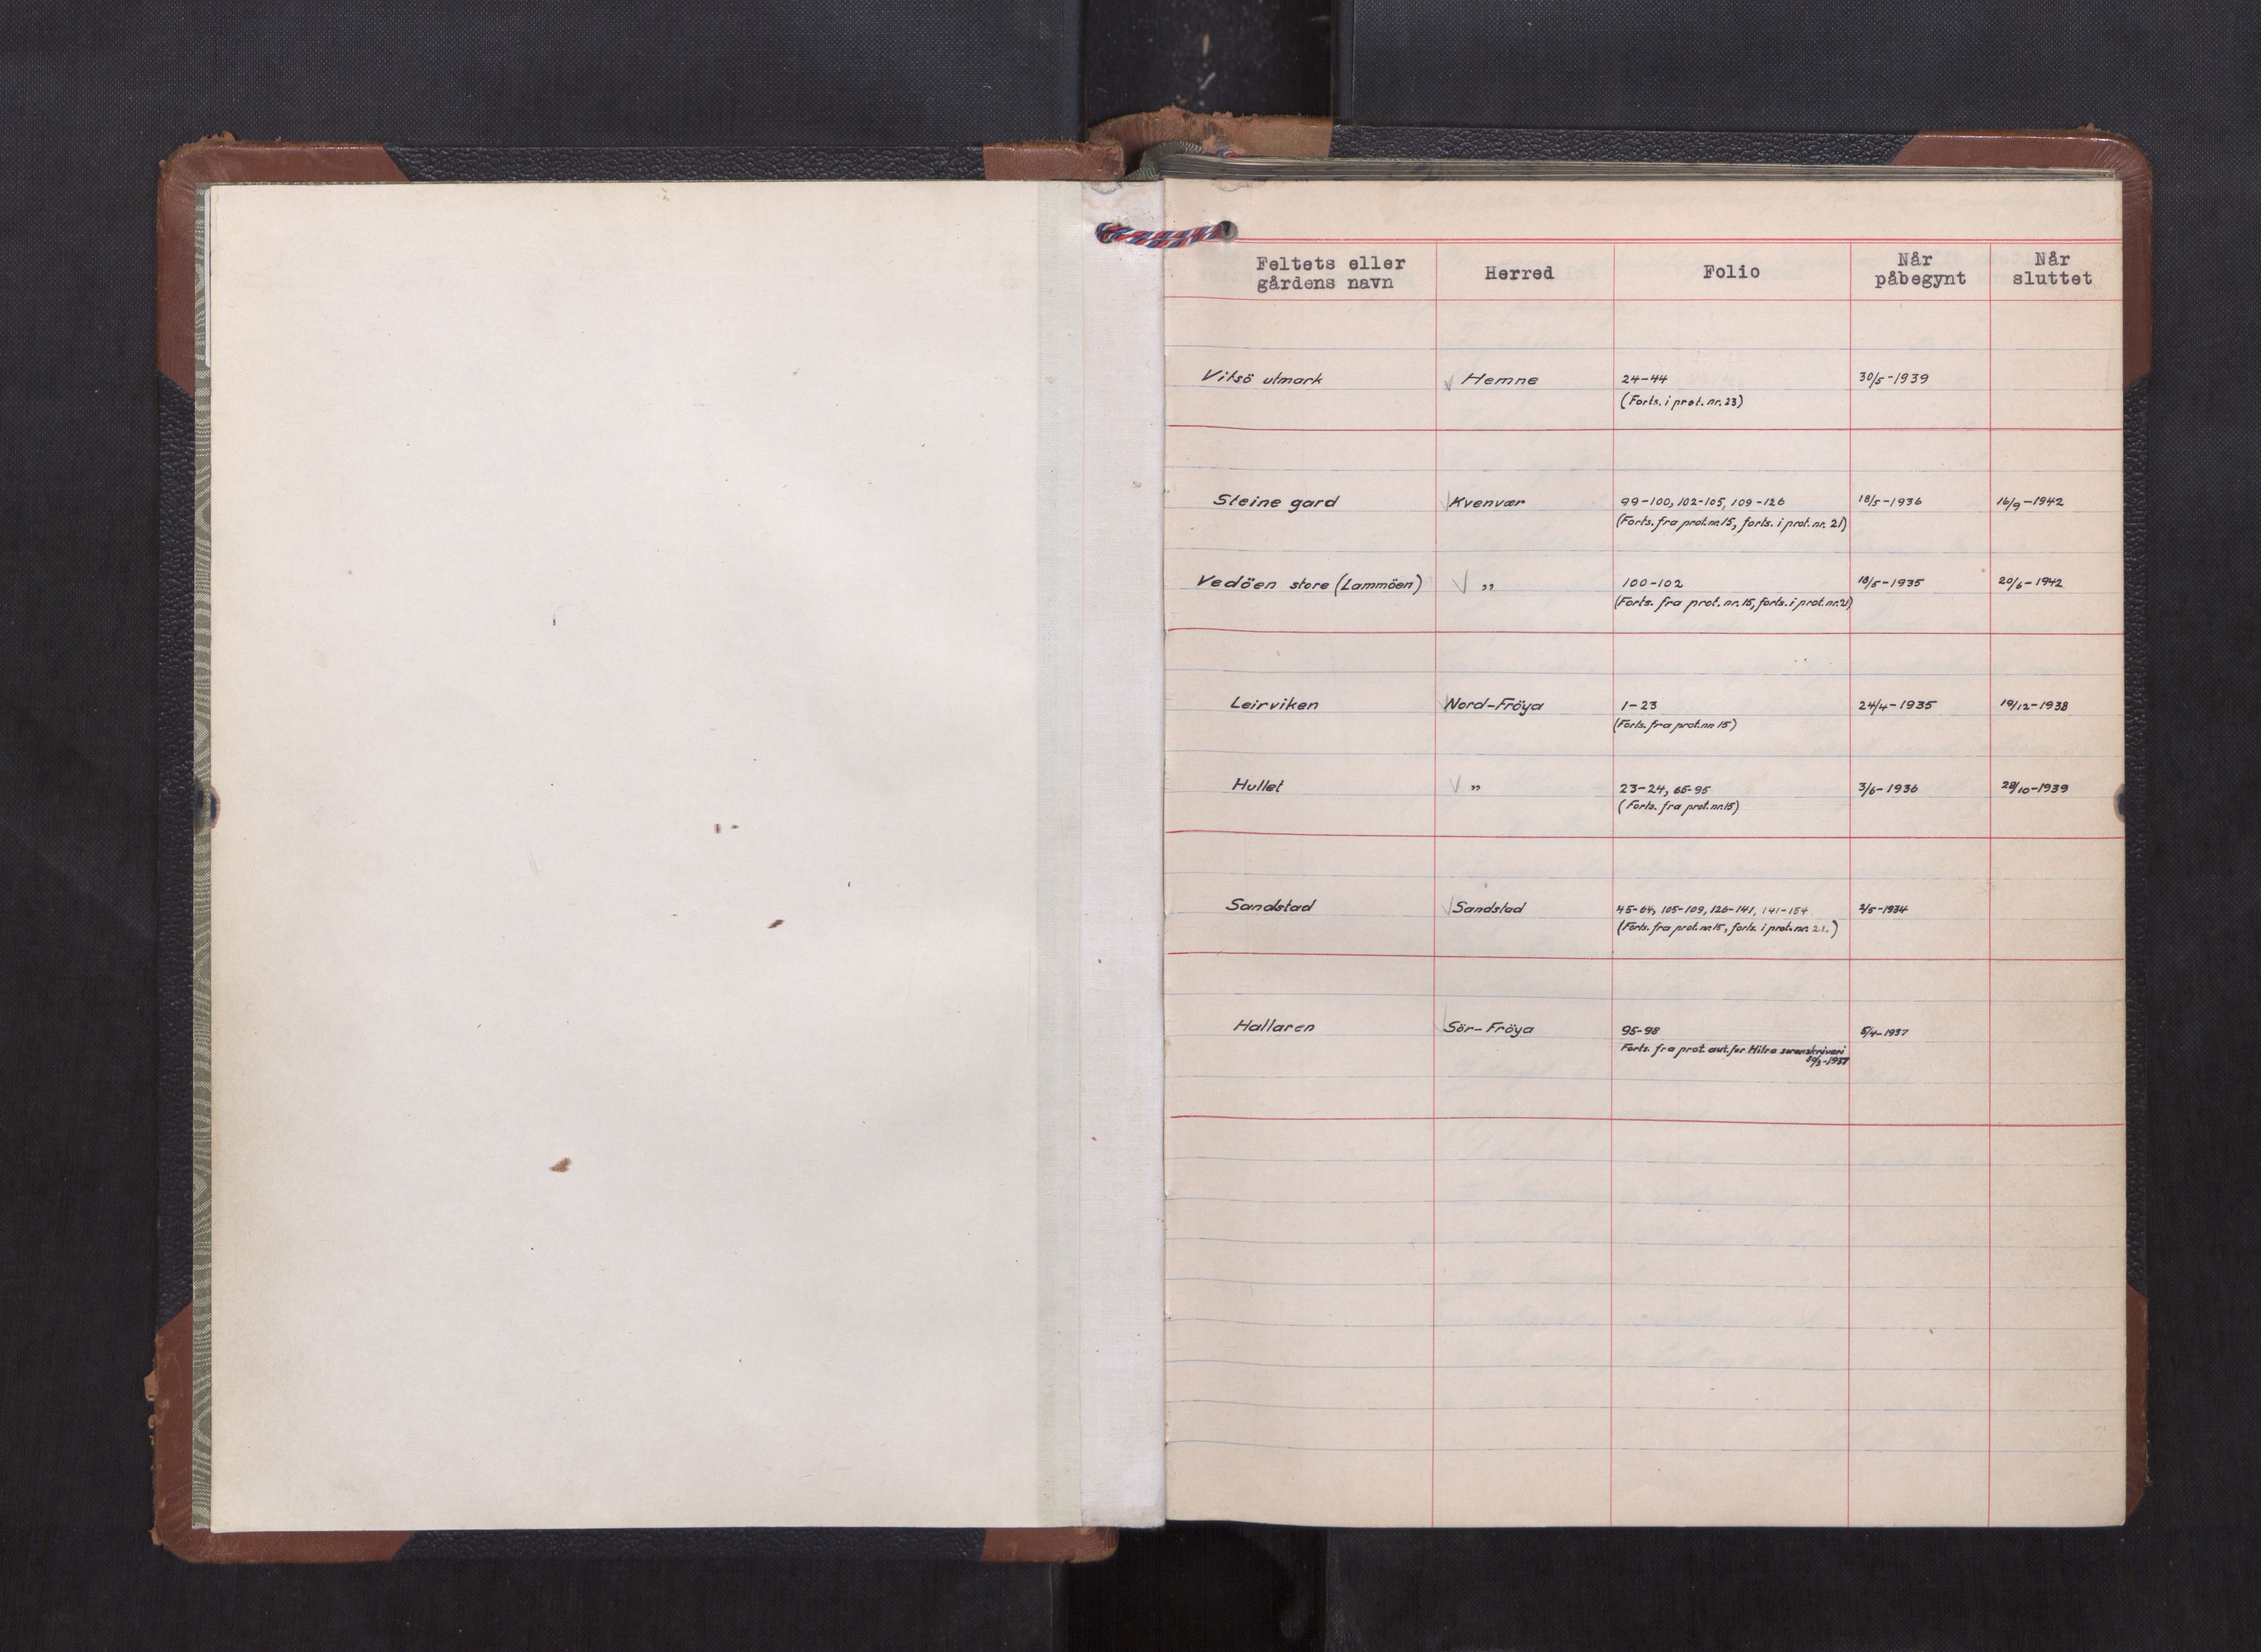 Feltets eller gårdens navn Herred Folio Når påbegynt Når sluttet
Vitsö utmark Hemne 24-44 30/5-1939
(Forts. i prot. nr. 23)
Steine gard Kvenvær 99-100, 102-105, 109-126 18/5-1936 16/9-1942
(Forts. fra prot. nr. 15, forts. i prot. nr. 21)
Vedöen store (Lammöen) „ 100-102 18/5-1935 20/6-1942
(Forts. fra prot. nr. 15, forts. i prot. nr. 21)
Leirviken Nord-Fröya 1-23 24/4-1935 19/12-1938
(Forts. fra prot. nr. 15)
Hullet „ 23-24, 65-95 3/6-1936 28/10-1939
(Forts. fra prot. nr. 15)
Sandstad Sandstad 45-64, 105-109, 126-141, 141-154 2/5-1934
(Forts. fra prot. nr. 15, forts. i prot. nr. 21.)
Hallaren Sör-Fröya 95-98 5/4-1937
Forts. fra prot. aut. for Hitra sorenskriveri
-1937